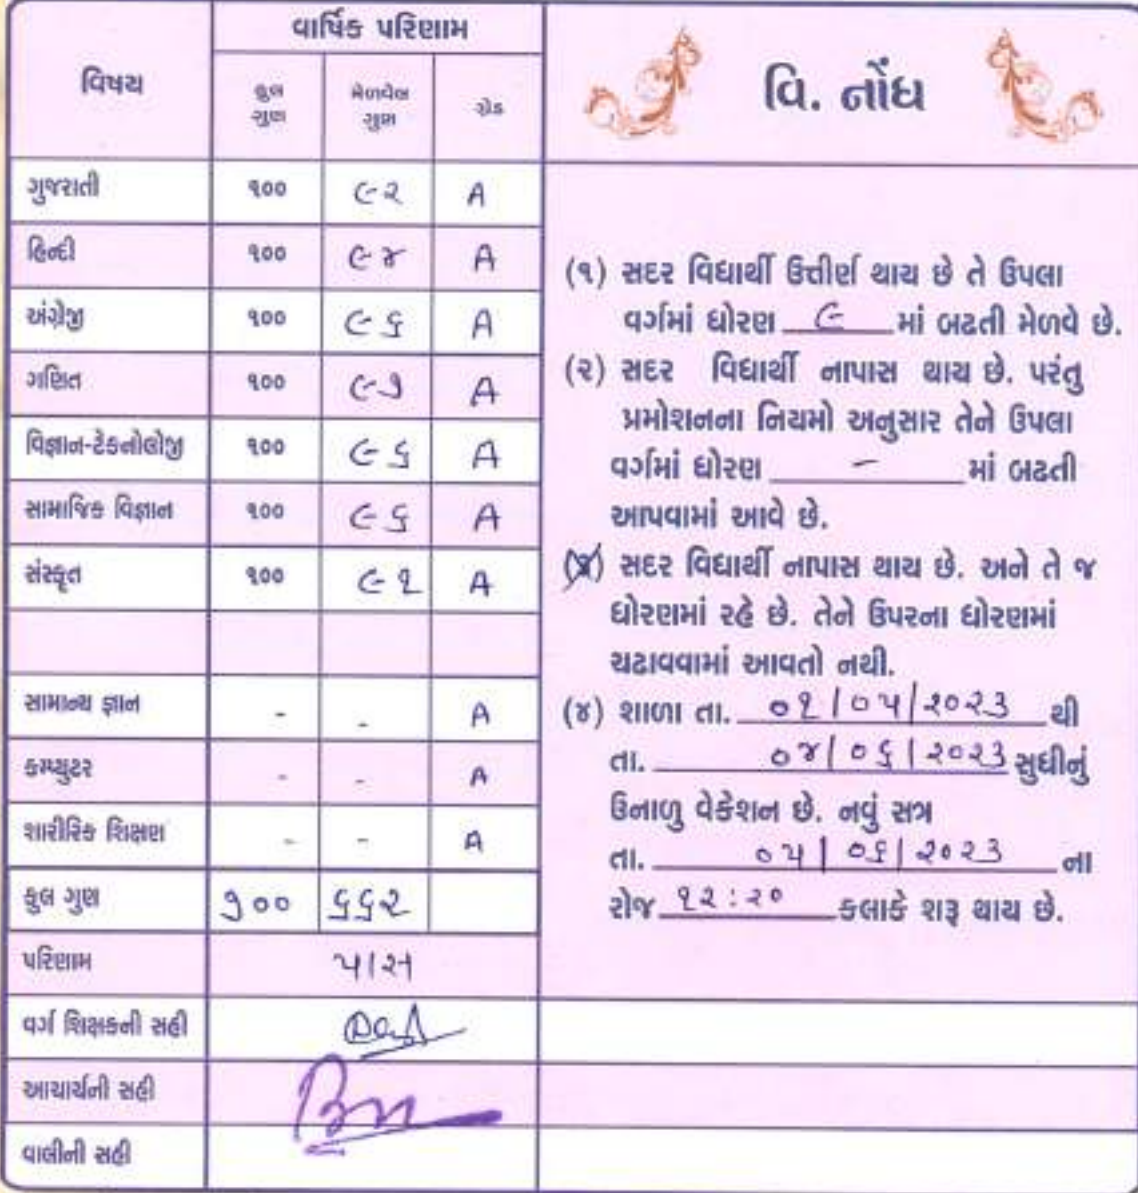 વાર્ષિક પરિણામ
વિષય
કુલ
ગુણ
મેળવેલ
ગુણ
ગ્રેડ
ગુજરાતી ૧૦૦ ૯૨ A
હિન્દી ૧૦૦ ૯૪ A
અંગ્રેજી ૧૦૦ ૯૬ A
ગણિત ૧૦૦ ૯૭ A
વિજ્ઞાન-ટેકનોલોજી ૧૦૦ ૯૬ A
સામાજિક વિજ્ઞાન ૧૦૦ ૯૬ A
સંસ્કૃત ૧૦૦ ૯૧ A
સામાન્ય જ્ઞાન - - A
કમ્પ્યુટર - - A
શારીરિક શિક્ષણ - - A
કુલ ગુણ ૭૦૦ ૬૬૨
પરિણામ પાસ
વર્ગ શિક્ષકની સહી
આચાર્યની સહી
વાલીની સહી
વિ. નોંધ
(૧) સદર વિદ્યાર્થી ઉત્તીર્ણ થાય છે તે ઉપલા
વર્ગમાં ધોરણ ૯ માં બઢતી મેળવે છે.
(૨) સદર વિદ્યાર્થી નાપાસ થાય છે. પરંતુ
પ્રમોશનના નિયમો અનુસાર તેને ઉપલા
વર્ગમાં ધોરણ - માં બઢતી
આપવામાં આવે છે.
સદર વિદ્યાર્થી નાપાસ થાય છે. અને તે જ
ધોરણમાં રહે છે. તેને ઉપરના ધોરણમાં
ચઢાવવામાં આવતો નથી.
(૪) શાળા તા. ૦૧/૦૫/૨૦૨૩ થી
તા. ૦૪/૦૬/૨૦૨૩ સુધીનું
ઉનાળુ વેકેશન છે. નવું સત્ર
તા. ૦૫/૦૬/૨૦૨૩ ના
રોજ ૧૨:૨૦ કલાકે શરૂ થાય છે.